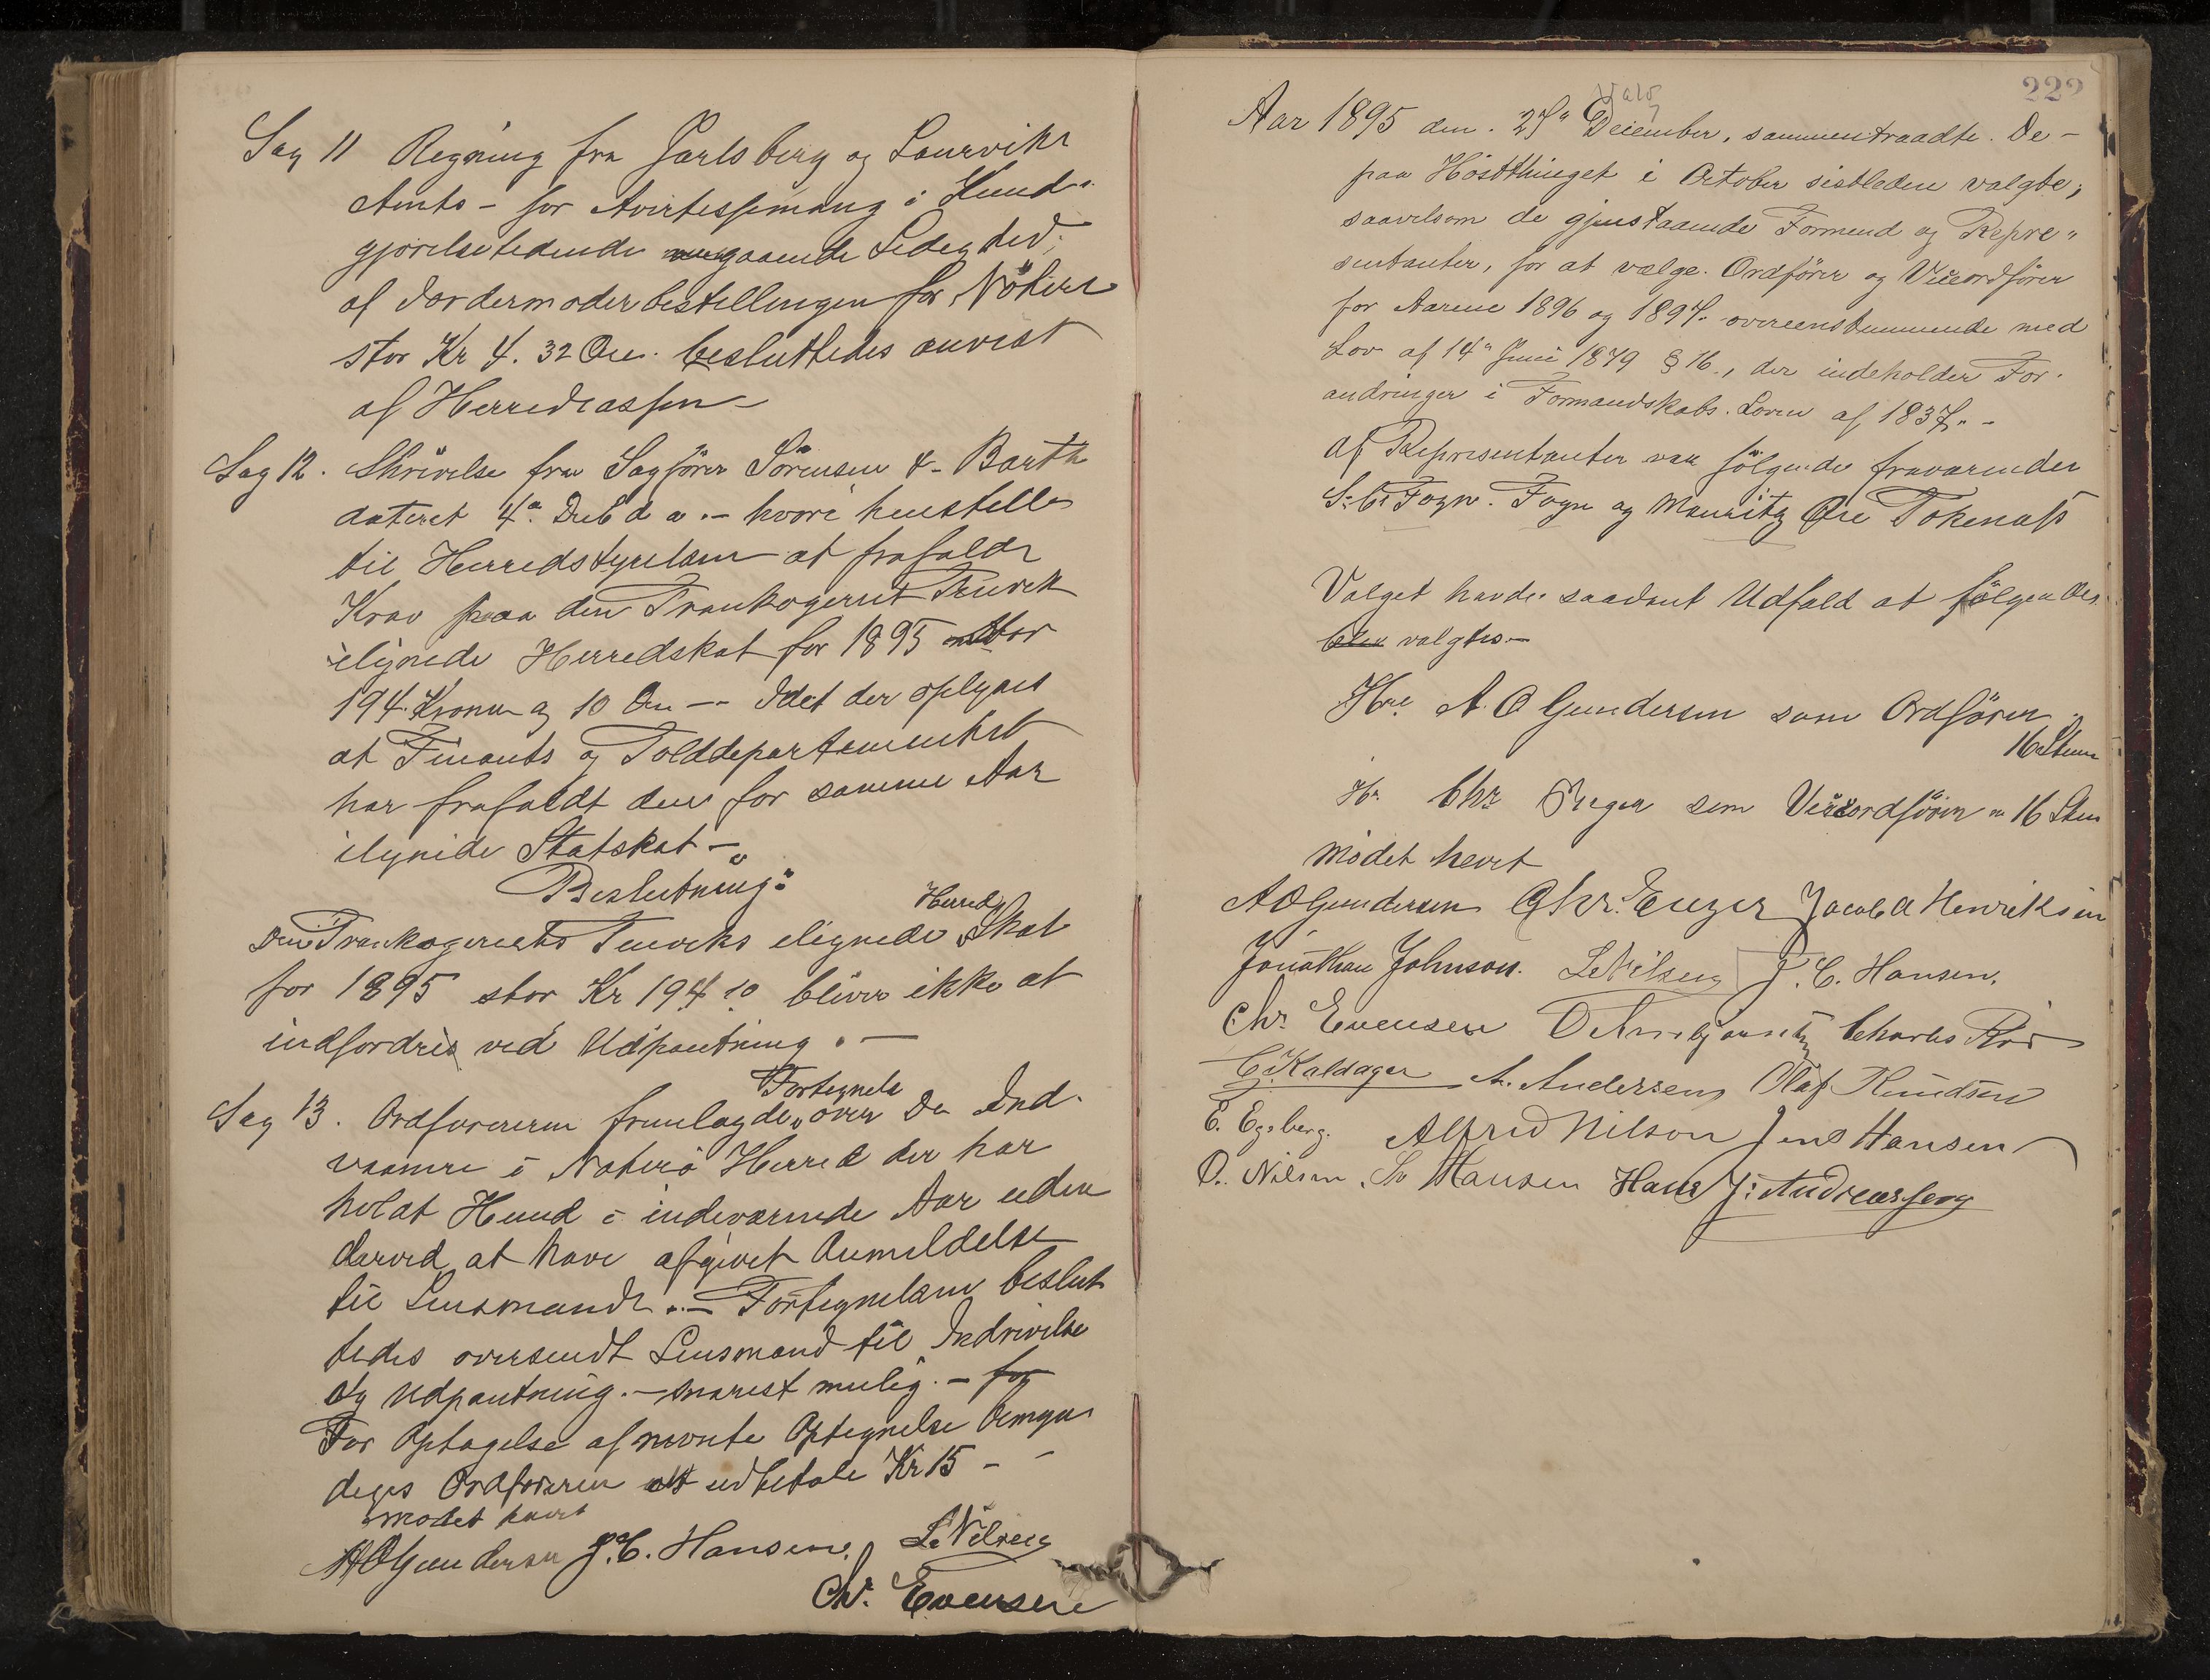 Sag 11 Regning fra Jarlsberg og Laurviks
Amts - for Avertissemang i Kund-
gjörelsetidende angaaende Ledighed
af Jordermoderbestillingen for Nöterö
stor Kr 4. 32 Öre. besluttedes anvist
af Herredcassen -
Sag 12. Skrivelse fra Sagförer Sörensen & Barth
dateret 4de Decb d a. - hvori henstilles
til Herredstyrelsen at frafalde
Krav paa den Trankogeriet
ilignede Herredskat for 1895 stor
194. Kroner og 10 Öre -- Idet der oplyses
at Finants og Tolddepartementet
har frafaldt den for samme Aar
ilignede Statskat -
Beslutning:
Den Trankogeriets ilignede Herreds Skat
for 1895 stor Kr 194.10 bliver ikke at
indfordres ved Udpantning. -
Sag 13. Ordföreren fremlagde Fortegnelse over De Ind-
vaanere i Nöterö Herred der har
holdt Hund i indeværende Aar uden
derved at have afgivet Anmeldelse
til Lensmanden. - Fortegnelsen beslut
tedes oversendt Lensmand til Inddrivelse
Og Udpantning. - snarest mulig. - for
For Optagelse af nevnte Optegnelse
Ordföreren at udbetale Kr 15 -
mödet hævet
A O Gundersen J. C. Hansen. L. Nilsen
Chr. Evensen
222
Valg
Aar 1895 den. 27" December, sammentraadte. De -
paa Höstthinget i October sistleden valgte,
saavelsom de gjenstaaende Formend og Repre"
sentanter, for at vælge. Ordförer og Viceordförer
for Aarene 1896 og 1897. overeensstemmende med
Lov af 14" Juni 1879 § 16., der indeholder For-
andringer i Formandskabs. Loven af 1837. -
Af Representanter var fölgende fraværende
Fogn og Mauritz Öre Tokenæs
Valget havde saadant Udfald at fölgende
blev valgtes. -
Hr. A. O Gundersen som Ordförer.
16 Stem
Hr. Chr Unger som Viceordförer " 16 Stem
Mödet hævet
A O Gundersen Chr. Jacob A Henriksen
Jonathan Johnson. L. Nilsen J. C. Hansen.
Chr. Evensen Charles
C. Kaldager A. Andersen Olaf Knudsen
E. Egeberg. Alfred Nilson Jens Hansen
O. Nilsen. Hansen Hans J: Andreassen